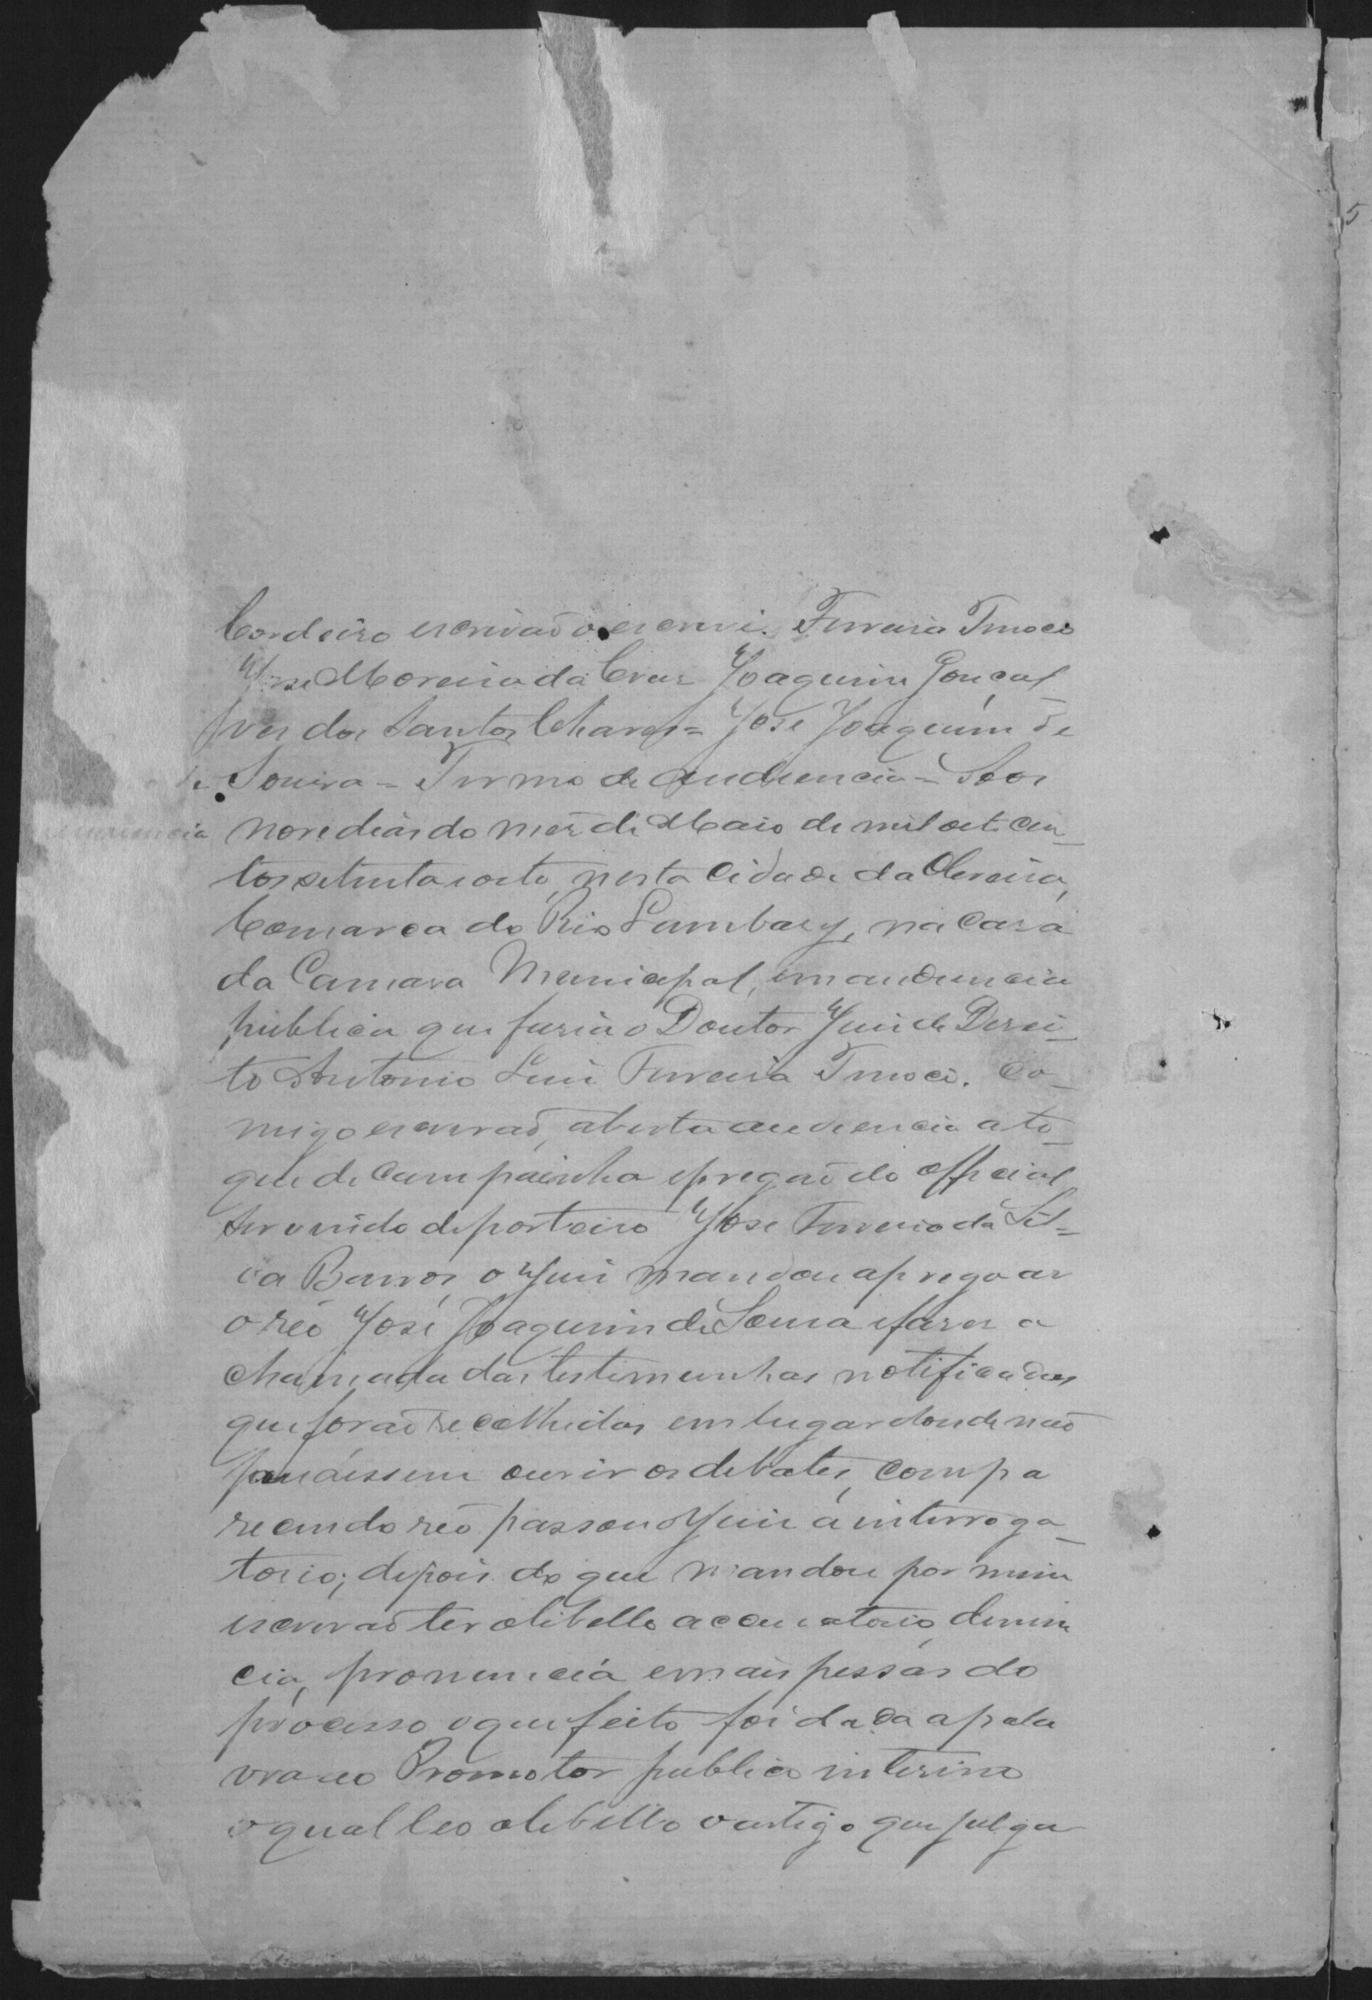 Cordeiro escrivaõ o escrevi. Ferreira Tinoco
José Moreira da Cruz Joaquim Gonçal_
ves dos Santos Chaves= José Joaquim de
Sousa = Termo de audiencia = Aos
nove dias do mez de Maio de mil oito cen_
tos setenta e oito, nesta Cidade da Oliveira,
Comarca do Rio Lambary, na Casa
da Camara Municipal, em audiencia
publica que fasia o Doutor Juiz de Direi_
to Antonio Luiz Ferreira Tinoco. Co_
migo escrivaõ, aberta audiencia a to_
que de campainha e pregaõ do official
servindo de porteiro José Ferreira da Sil=
va Barros, o Juiz mandou apregoar
o reo José Joaquim de Sousa e faser a
chamada das testimunhas notificadas
que foraõ recolhidas em lugar donde naõ
podessem ouvir os debates, compa
recendo reo passou o Juiz a interroga_
torio; depois do que mandou por mim
escrivaõ ler o libello accusatorio, denun
cia, pronuncia e mais pessas do
processo o que feito foi dada a pala
vra ao Promotor publico interino
o qual leo o libello o artigo que julga
audiencia